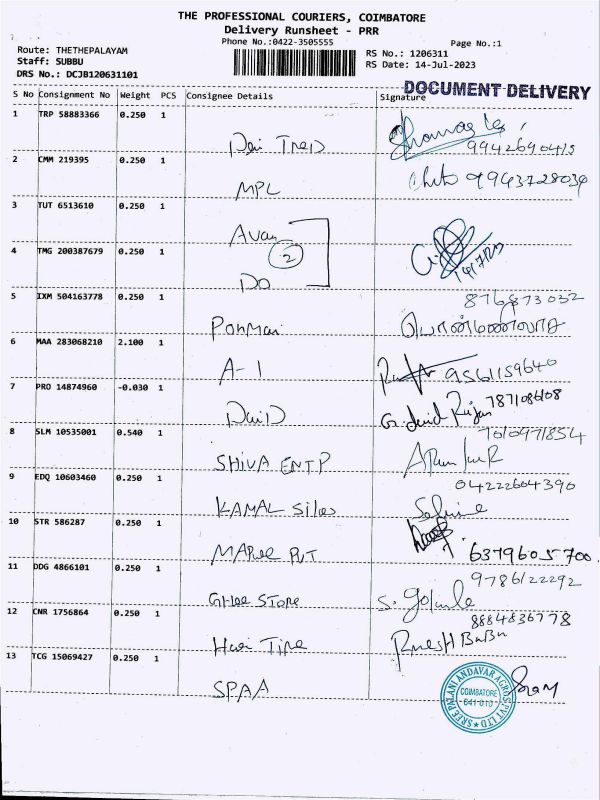 THE PROFESSIONAL COURIERS, COIMBATORE
Delivery Runsheet - PRR
Phone No.:0422-3505555
Page No.:1
Route: THETHEPALAYAM
Staff: SUBBU
DRS No.: DCJB120631101
RS No.: 1206311
RS Date: 14-Jul-2023
DOCUMENT DELIVERY
S No Consignment No Weight PCS Consignee Details Signature
1 TRP 58883366 0.250 1
9942690415
2 CMM 219395 0.250 1
MPL 9943728034
3 TUT 6513610 0.250 1
Avan
2
4 TMG 200387679 0.250 1
Do
5 IXM 504163778 0.250 1
Ponmani
6 MAA 283068210 2.100 1
A-1 9561159640
7 PRO 14874960 -0.030 1
David G. David Rajan 7871086108
8 SLM 10535001 0.540 1
7010971854
SHIVA ENTP Arun kur
9 EDQ 10603460 0.250 1
04222604390
KAMAL Silos
10 STR 586287 0.250 1
6379605700
11 DDG 4866101 0.250 1
9786122292
Ghee Store
12 CNR 1756864 0.250 1
8884836778
Hari Tire RameSH BaBu
13 TCG 15069427 0.250 1
SPAA
SREE PALANI ANDAVAR AGRO PVT LTD
COIMBATORE
641 010